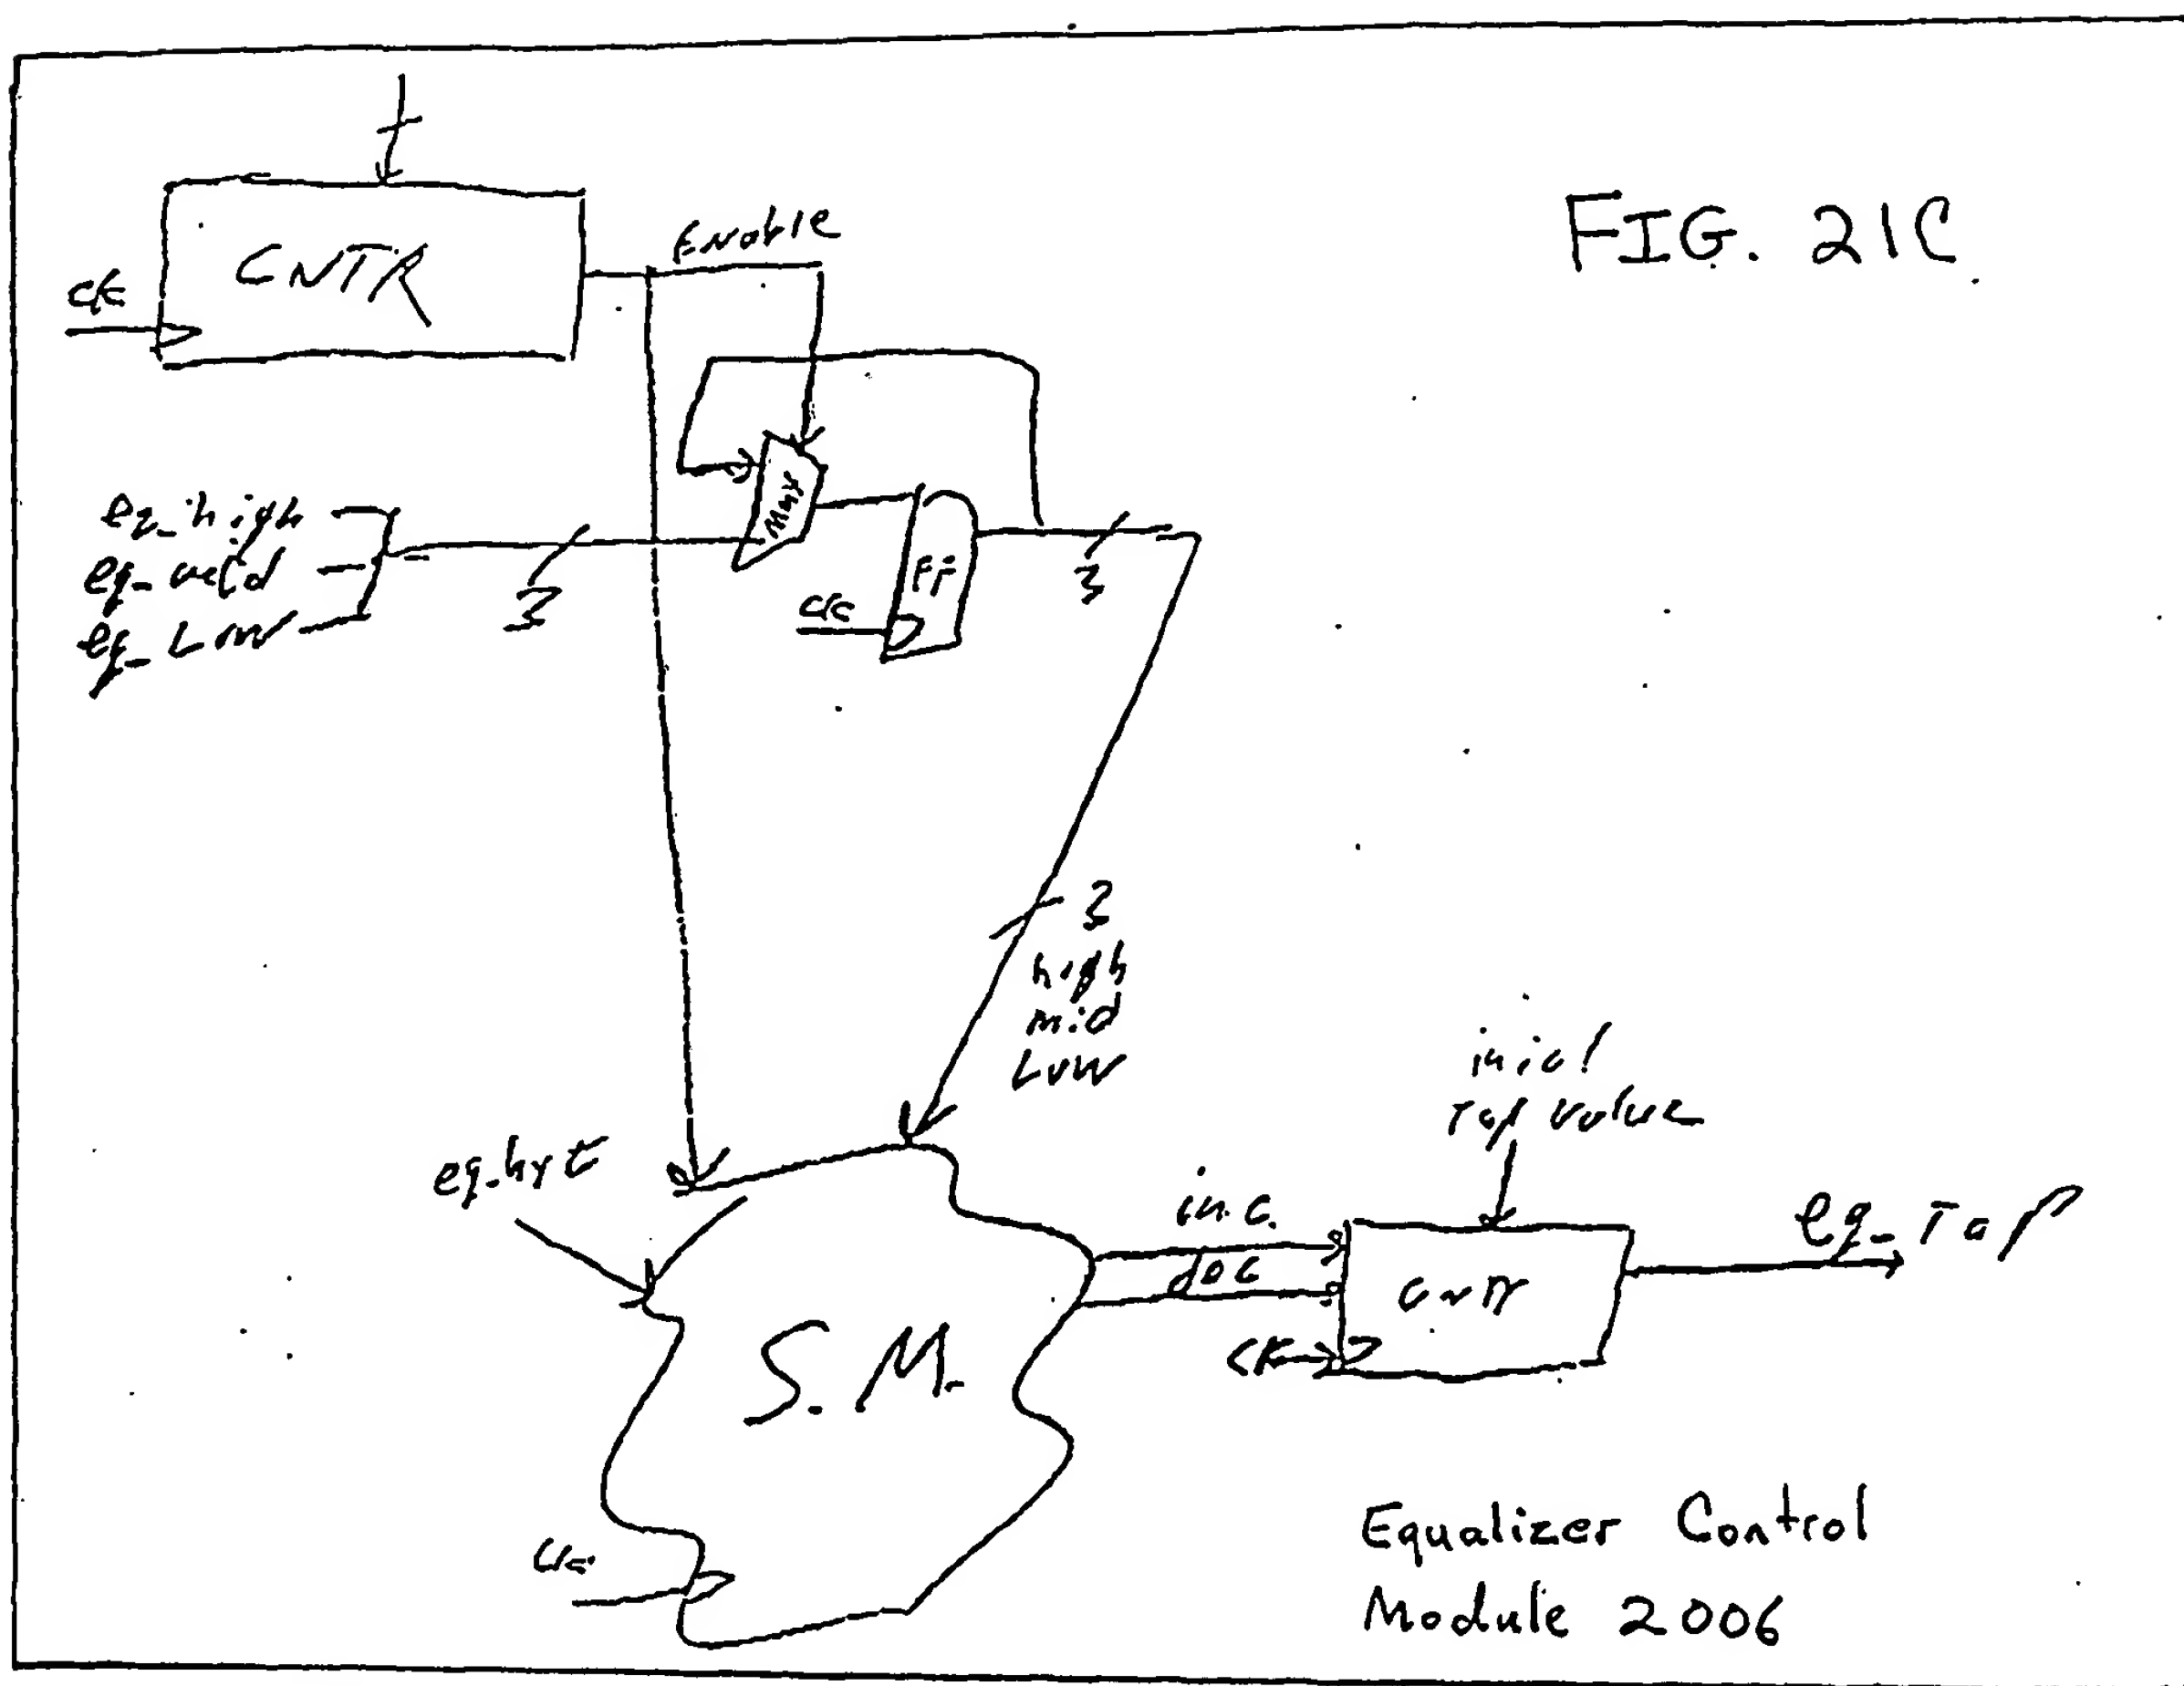 FIG. 21C
CNTR
ck
Enable
Mux
eq_high
eq_
eq_Low
3
FF
ck
3
3
high
mid
Low
eq_hyt
S.M.
ck
inc.
dec
ck
Tap Value
eq_Tap
Equalizer Control
Module 2006